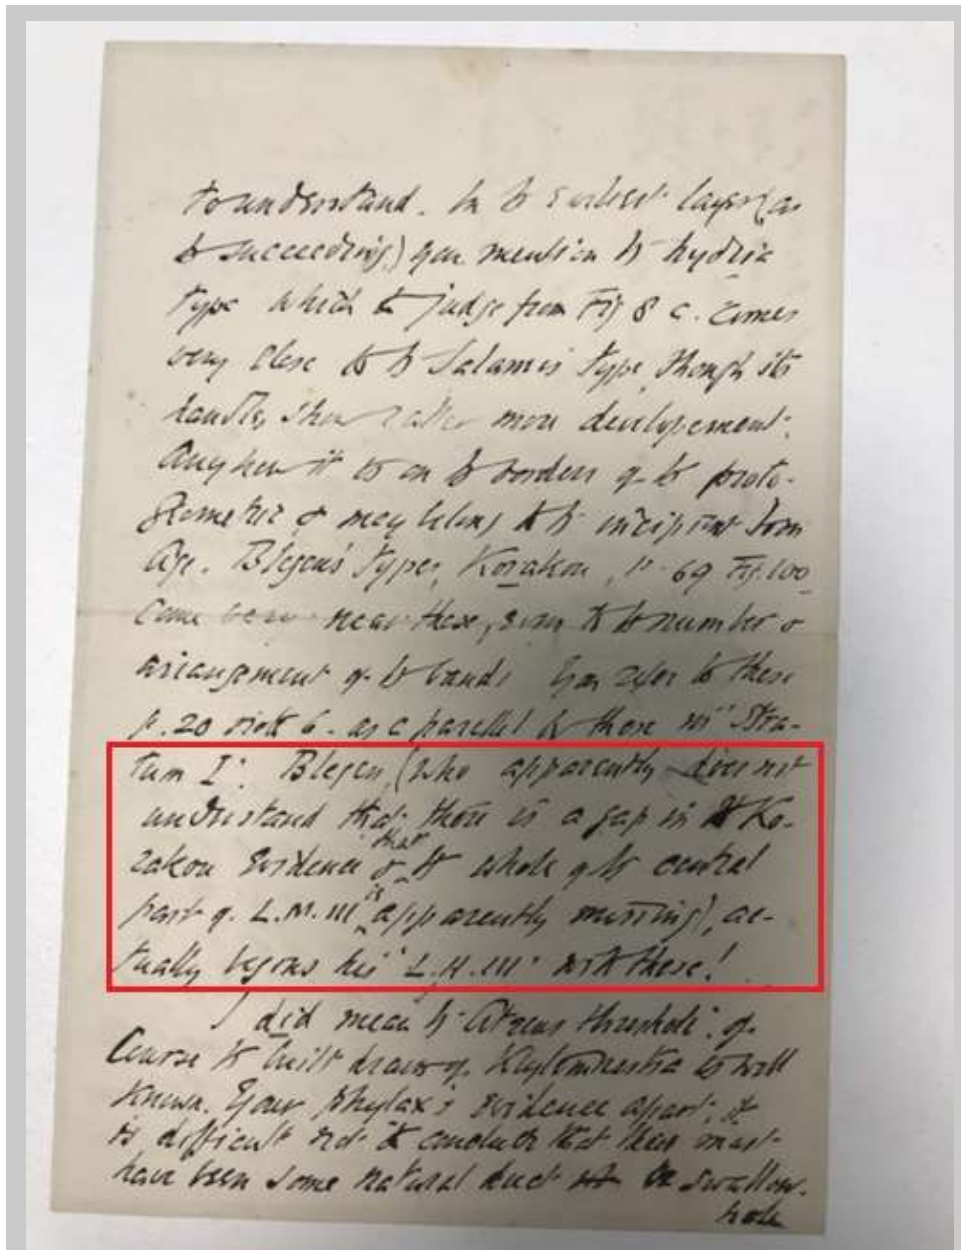 to understand. In to Earliest layer (as
to succeeding) you mention to hydria
type which to judge from Fig 8 c. comes
very close to to Salamis type, though its
handles show rather more developement.
Anyhow it is on to borders of to proto-
geometric & may belong to to incipient Iron
Age. Blegen's types, Korakou, p. 69 Fig. 100
come very near these, even to to number &
arrangement of to bands. You refer to these
p. 20 note 6. as a parallel to those in "Stra-
tum I". Blegen, (who apparently does not
understand that there is a gap in to Ko-
rakou Evidence & that to whole of to central
part of L.M.III is apparently missing), ac-
tually begins his "L.H.III" with these!
I did mean to "Atreus threshold". Of
Course to built drain of Klytemnestra is well
known. Your phylax's evidence apart, it
is difficult not to conclude that there must
have been some natural duct or swallow-
hole